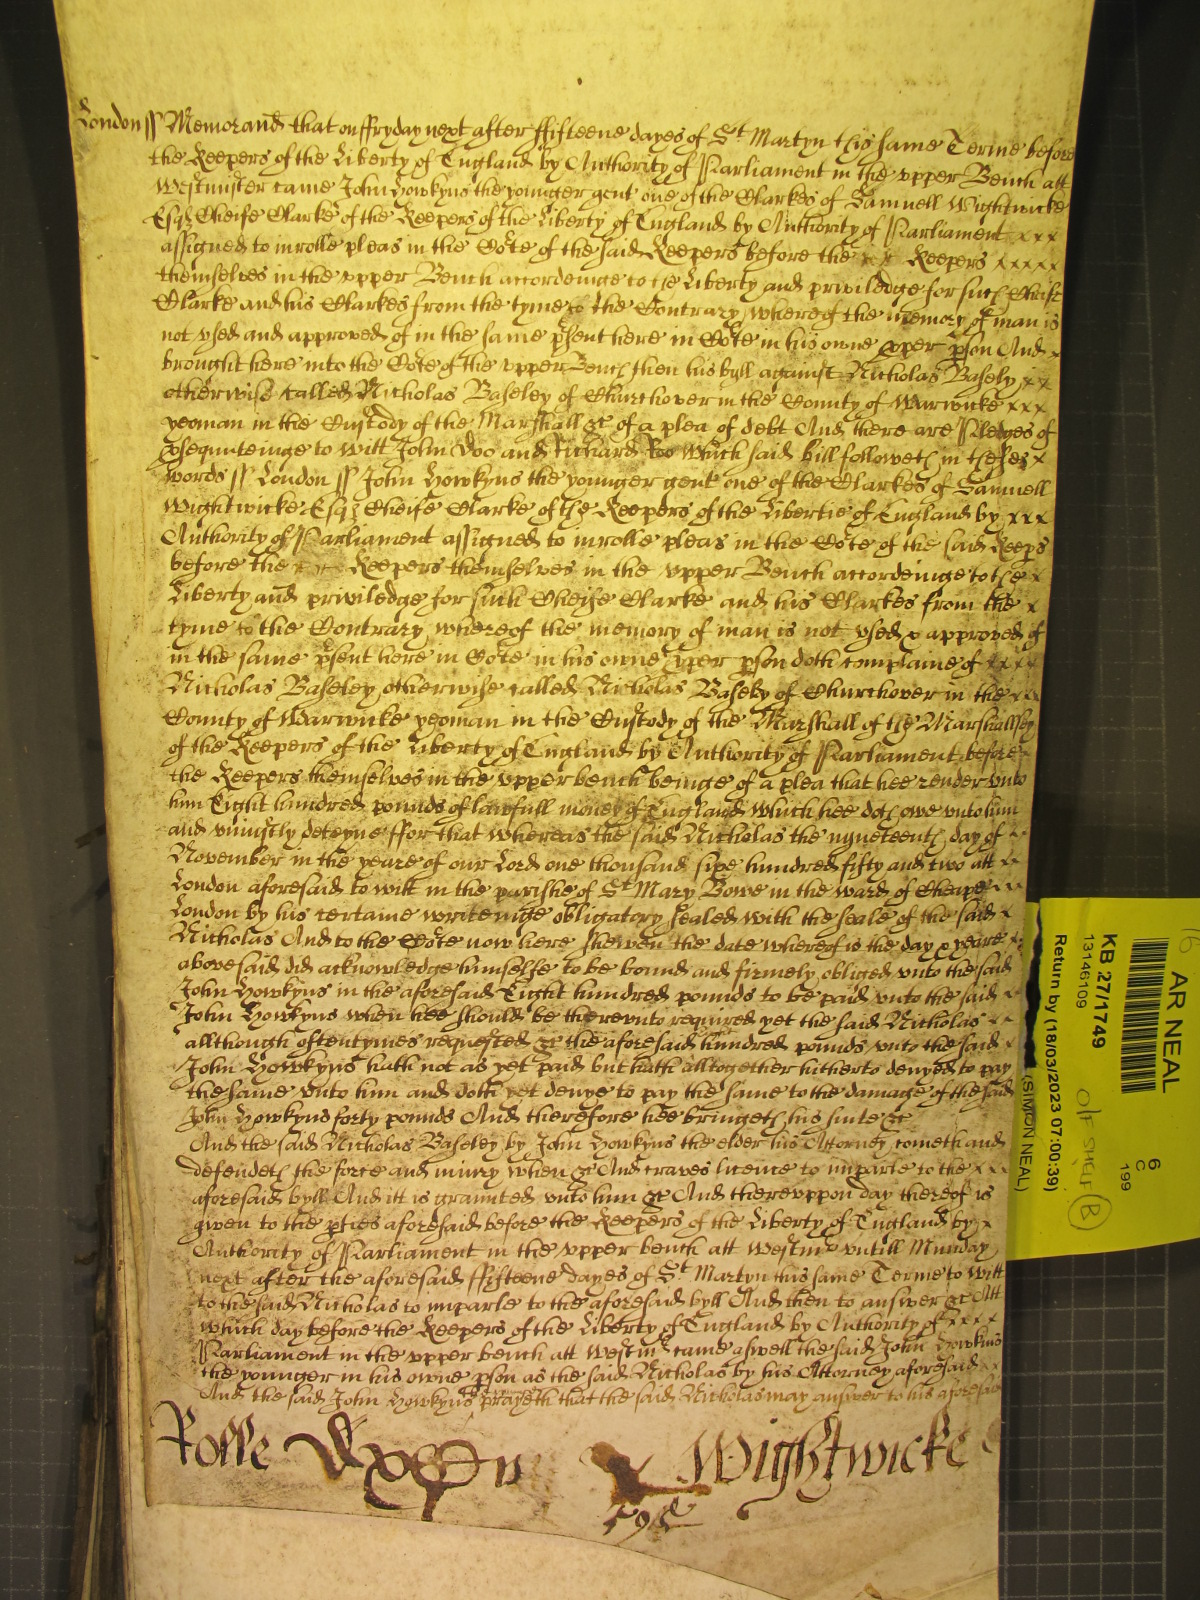 London ss Memorand that on ffryday next after ffifteene dayes of St Martyn this same Terme before
the Keepers of the Liberty of England by Authority of Parliament in the vpper Bench att
Westminster came John Howkyns the younger gent one of the Clarkes of Samuell Wightwicke
Esqz Cheife Clarke of the Keepers of the Liberty of England by Authority of Parliament x x x
assigned to inrolle pleas in the Cote of the said Keepers before the Keepers x x x x
themselves in the vpper Bench accordeinge to the Liberty and priviledge for such Cheife
Clarke and his Clarkes from the tyme to the Contrary whereof the memory of man is
not vsed and approved of in the same psent here in Cote in his owne pper pson And x
brought here into the Cote of the vpper Bench then his byll against Nicholas Basely x x
otherwise called Nicholas Baseley of Churchover in the County of Warwicke x x x
yeoman in the Custody of the Marshall &c of a plea of debt And there are Pledges of
psequuteinge to witt John Doo and Richard Roo Which said bill followeth in theses x
words ss London ss John Howkyns the younger gent one of the Clarkes of Samuell
Wightwicke Esqz Cheife Clarke of the Keepers of the Libertie of England by x x x
Authority of Parliament assigned to inrolle pleas in the Cote of the said Keeps
before the Keepers themselves in the vpper Bench accordeinge to the x
Liberty and priviledge for such Cheife Clarke and his Clarkes from the x
tyme to the Contrary whereof the memory of man is not vsed & approved of
in the same psent here in Cote in his owne pper pson doth complaine of x x x x
Nicholas Baseley otherwise called Nicholas Basely of Churchover in the x x
County of Warwicke yeoman in the Custody of the Marshall of the Marshallsey
of the Keepers of the Liberty of England by Authority of Parliament before
the Keepers themselves in the vpper bench beinge of a plea that hee render vnto
him Eight hundred pounds of lawfull money of England which hee doth owe vnto him
and vniustly deteyne ffor that whereas the said Nicholas the nyneteenth day of x x
November in the yeare of our Lord one thousand sixe hundred fifty and two att x x
London aforesaid to witt in the parishe of St Mary Bowe in the ward of Cheape x x
London by his certaine writeinge obligatory sealed with the seale of the said x
Nicholas And to the Cote now here shewen the date whereof is the day & yeare x
abovesaid did acknowledge himselfe to be bound and firmely obliged vnto the said
John Howkyns in the aforesaid Eight hundred pounds to be paid vnto the said x
John Howkyns when hee should be therevnto required yet the said Nicholas x x
allthough oftentymes requested &c the aforesaid hundred pounds vnto the said
John Howkyns hath not as yet paid but hath alltogether hitherto denyed to pay
the same vnto him and doth yet denye to pay the same to the damage of the said
John Howkyns forty pounds And therefore hee bringeth his suite &c
And the said Nicholas Baseley by John Howkyns the elder his Attorney cometh and
defendeth the force and iniury when &c And craves licence to imparle to the x x x
aforesaid byll And itt is graunted vnto him &c And therevppon day thereof is
given to the pties aforesaid before the Keepers of the Liberty of England by x
Authority of Parliament in the vpper bench att Westmr vntill Munday
next after the aforesaid ffifteene dayes of St Martyn this same Terme to witt
to the said Nicholas to imparle to the aforesaid byll And then to answer &c Att
which day before the Keepers of the Liberty of England by Authority of x x x x
Parliament in the vpper bench att Westmr came aswell the said John Howkins
the younger in his owne pson as the said Nicholas by his Attorney aforesaid
And the said John Howkyns prayeth that the said Nicholas may answer to his aforesaid
Rolle Wightwicke
AR NEAL
KB 27/1749
13146109
Return by (18/03/2023 07:00:39)
(SIMON NEAL)
O/F SHELF B
6
C
199
16